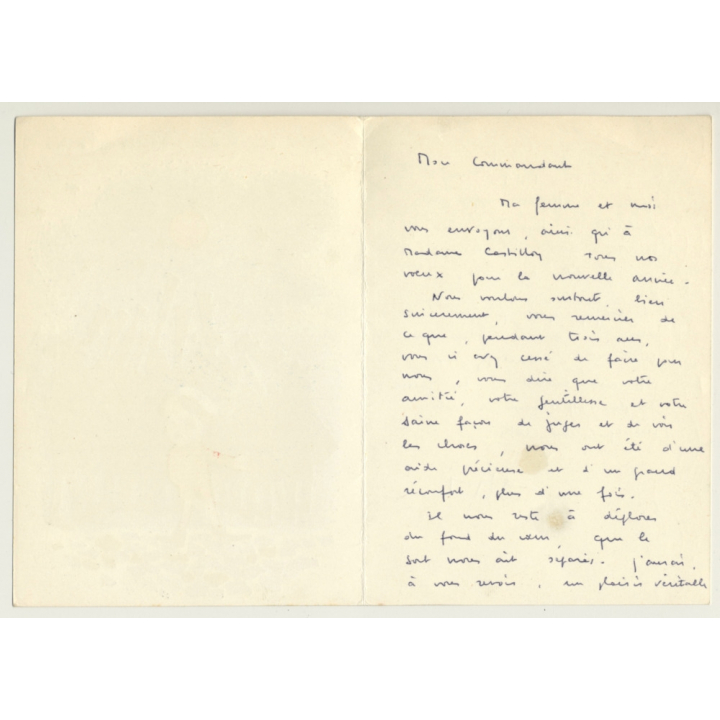 Mon Commandant
Ma femme et moi
vous envoyons, ainsi qu'à
Madame Castillon tous nos
voeux pour la nouvelle année.
Nous voulons surtout, bien
sincèrement, vous remercier de
ce que, pendant trois ans,
vous n'avez cessé de faire pour
nous, vous dire que votre
amitié, votre gentillesse et votre
saine façon de juger et de voir
les choses, nous ont été d'une
aide précieuse et d'un grand
réconfort, plus d'une fois.
Il nous reste à déplorer
du fond du coeur, que le
sort nous ait séparés. J'aurai,
à vous revoir, un plaisir véritable